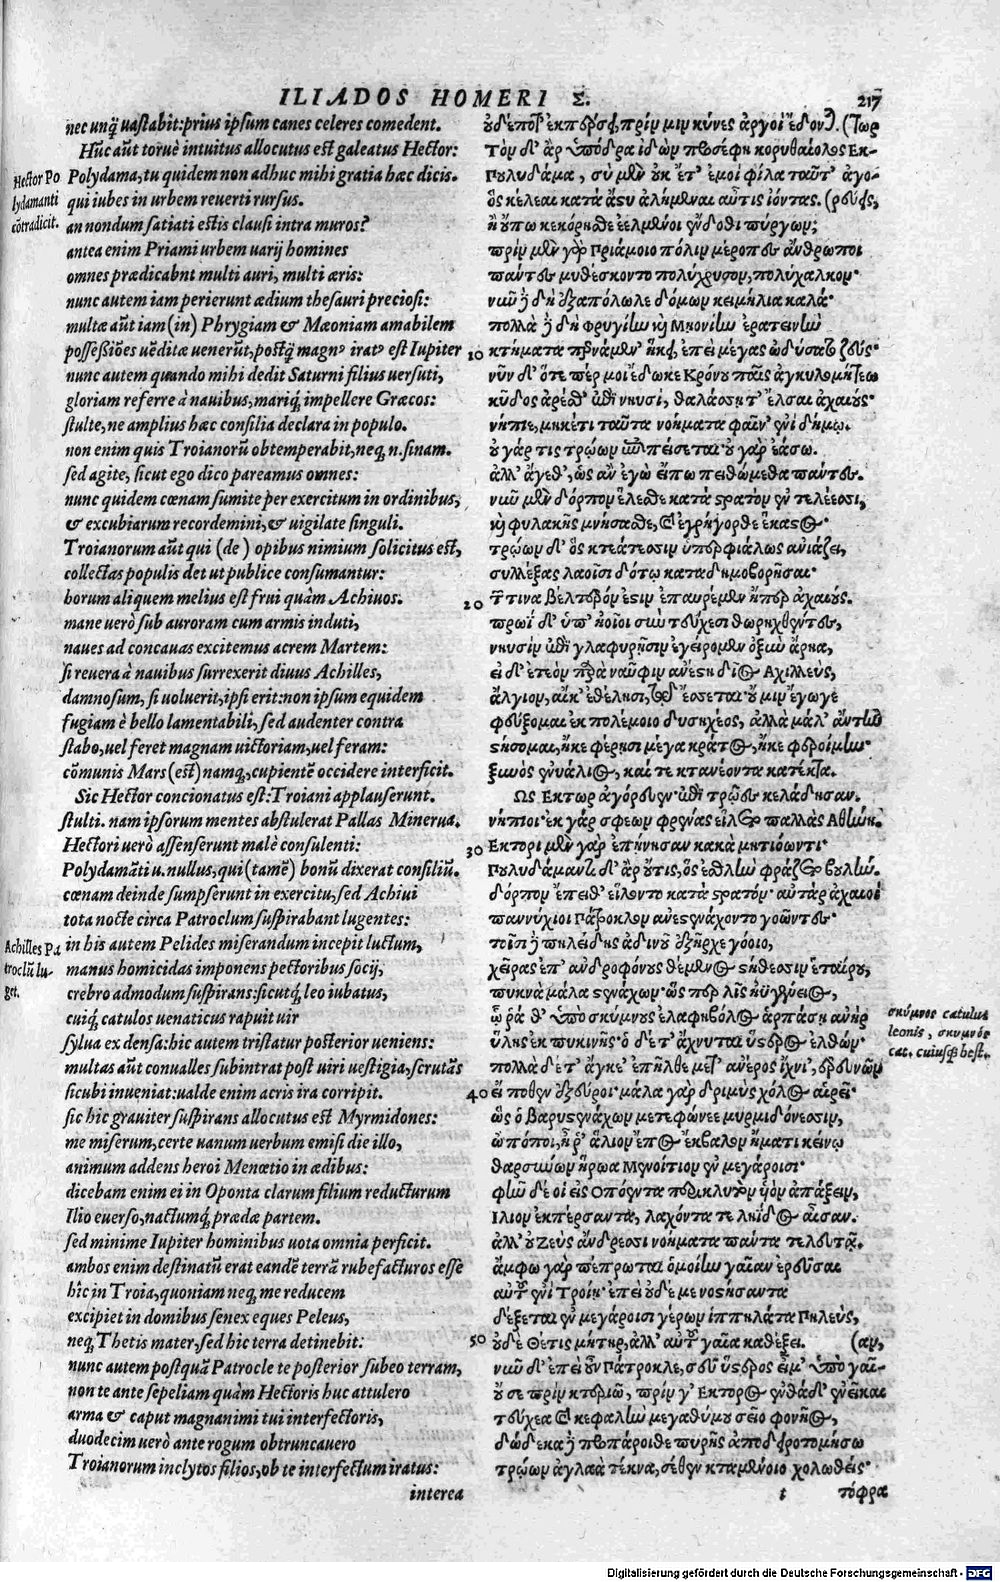 ILIADOS HOMERI Σ. 217
nec unq̃ uastabit: prius ipsum canes celeres comedent.
Hũc aũt toruè intuitus allocutus est galeatus Hector:
Hector Po
lydamanti
cõtradicit.
Polydama, tu quidem non adhuc mihi grata hæc dicis.
qui iubes in urbem reuerti rursus.
an nondum satiati estis clausi intra muros?
antea enim Priami urbem uarij homines
omnes prædicabnt multi auri, multi æris:
nunc autem iam perierunt ædium thesauri preciosi:
multæ aũt iam (in) Phrygiam & Mæoniam amabilem
possessiões uẽditæ uenerũt, postq̃ magnꝰ iratꝰ est Iupiter
nunc autem quando mihi dedit Saturni filius uersuti,
gloriam referre à nauibus, mariq́; impellere Græcos:
stulte, ne amplius hæc consilia declara in populo.
non enim quis Troianorũ obtemperabit, neq; n. sinam.
sed agite, sicut ego dico pareamus omnes:
nunc quidem cœnam sumite per exercitum in ordinibus,
& excubiarum recordemini, & uigilate singuli.
Troianorum aũt qui (de) opibus nimium solicitus est,
collectas populis det ut publice consumantur:
horum aliquem melius est frui quàm Achiuos.
mane uerò sub auroram cum armis induti,
naues ad concauas excitemus acrem Martem:
si reuera à nauibus surrexerit diuus Achilles,
damnosum, si uoluerit, ipsi erit: non ipsum equidem
fugiam è bello lamentabili, sed audenter contra
stabo, uel feret magnam uictoriam, uel feram:
cõmunis Mars (est) namq;, cupientẽ occidere interficit.
Sic Hector concionatus est: Troiani applauserunt.
stulti. nam ipsorum mentes abstulerat Pallas Minerua.
Hectori uerò assenserunt malè consulenti:
Polydamãti u. nullus, qui (tamẽ) bonũ dixerat consiliũ.
cœnam deinde sumpserunt in exercitu, sed Achiui
tota nocte circa Patroclum suspirabant lugentes:
Achilles Pa
troclũ lu-
get.
in his autem Pelides miserandum incepit luctum,
manus homicidas imponens pectoribus socij,
crebro admodum suspirans: sicutq́; leo iubatus,
cuiq́; catulos uenaticus rapuit uir
sylua ex densa: hic autem tristatur posterior ueniens:
multas aũt conualles subintrat post uiri uestigia, scrutãs
sicubi inueniat: ualde enim acris ira corripit.
sic hic grauiter suspirans allocutus est Myrmidones:
me miserum, certe uanum uerbum emisi die illo,
animum addens heroi Menœtio in ædibus:
dicebam enim ei in Oponta clarum filium reducturum
Ilio euerso, nactumq́; prædæ partem.
sed minime Iupiter hominibus uota omnia perficit.
ambos enim destinatũ erat eandẽ terrã rubefacturos esse
hîc in Troia, quoniam neq; me reducem
excipiet in domibus senex eques Peleus,
neq; Thetis mater, sed hic terra detinebit:
nunc autem postquã Patrocle te posterior subeo terram,
non te ante sepeliam quàm Hectoris huc attulero
arma & caput magnanimi tui interfectoris,
duodecim uerò ante rogum obtruncauero
Troianorum inclytos filios, ob te interfectum iratus:
interea
οὐδέ ποτ' ἐκπέρσει, πρίν μιν κύνες ἀργοὶ ἔδονται. (τωρ
Τὸν δ' ἂρ ὑπόδρα ἰδὼν προσέφη κορυθαίολος Εκ-
Πουλυδάμα, σὺ μὲν οὐκ ἔτ' ἐμοὶ φίλα ταῦτ' ἀγο-
ὃς κέλεαι κατὰ ἄστυ ἀλήμεναι αὖτις ἰόντας. (ρεύεις,
ἢ οὔπω κεκόρηθε ἐελμένοι ἔνδοθι πύργων;
πρὶν μὲν γὰρ Πριάμοιο πόλιν μέροπες ἄνθρωποι
πάντες μυθέσκοντο πολύχρυσον, πολύχαλκον·
νῦν δὲ δὴ ἐξαπόλωλε δόμων κειμήλια καλά·
πολλὰ δὲ δὴ φρυγίην καὶ Μηονίην ἐρατεινὴν
10 κτήματα περνάμεν' ἥκει, ἐπεὶ μέγας ὠδύσατο ζεύς·
νῦν δ' ὅτε πέρ μοι ἔδωκε Κρόνου παῖς ἀγκυλομήτεω
κῦδος ἀρέσθ' ἐπὶ νηυσὶ, θαλάσσῃ τ' ἔλσαι ἀχαιούς·
νήπιε, μηκέτι ταῦτα νοήματα φαῖν' ἐνὶ δήμῳ.
οὐ γάρ τις τρώων ἐπιπείσεται· οὐ γὰρ ἐάσω.
ἀλλ' ἄγεθ', ὡς ἂν ἐγὼ εἴπω πειθώμεθα πάντες.
νῦν μὲν δόρπον ἕλεσθε κατὰ στρατὸν ἐν τελέεσσι,
καὶ φυλακῆς μνήσασθε, καὶ ἐγρήγορθε ἕκαστος·
τρώων δ' ὃς κτεάτεσσιν ὑπερφιάλως ἀνιάζει,
συλλέξας λαοῖσι δότω καταδημοβορῆσαι·
20 τῶν τινα βέλτερόν ἐστιν ἐπαυρέμεν ἤπερ ἀχαιούς.
πρωῒ δ' ὑπ' ἠοῖοι σὺν τεύχεσι θωρηχθέντες,
νηυσὶν ἐπὶ γλαφυρῇσιν ἐγείρομεν ὀξὺν ἄρηα,
εἰ δ' ἐτεὸν παρὰ ναῦφιν ἀνέστη δῖος Αχιλλεὺς,
ἄλγιον, αἴκ' ἐθέλησι, τῷ ἔσσεται· οὔ μιν ἔγωγε
φεύξομαι ἐκ πολέμοιο δυσηχέος, ἀλλὰ μάλ' ἄντην
στήσομαι, ἤ κε φέρῃσι μέγα κράτος, ἤ κε φεροίμην·
ξυνὸς ἐνυάλιος, καί τε κτανέοντα κατέκτα.
Ως Εκτωρ ἀγόρευεν· ἐπὶ τρῶες κελάδησαν.
νήπιοι· ἐκ γάρ σφεων φρένας εἵλετο παλλὰς Αθήνη.
30 Εκτορι μὲν γὰρ ἐπῄνησαν κακὰ μητιόωντι·
Πουλυδάμαντι δ' ἂρ οὔτις, ὃς ἐσθλὴν φράζετο βουλήν.
δόρπον ἔπειθ' εἵλοντο κατὰ στρατόν· αὐτὰρ ἀχαιοὶ
παννύχιοι Πάτροκλον ἀνεστενάχοντο γοῶντες·
τοῖσι δὲ πηλείδης ἁδινοῦ ἐξῆρχε γόοιο,
χεῖρας ἐπ' ἀνδροφόνους θέμενος στήθεσσιν ἑταίρου,
πυκνὰ μάλα στενάχων· ὥς περ λῒς ἠϋγένειος,
σκύμνος catulus
leonis, σκυμνὸς
cat. cuiusq; best.
ᾧ ῥά θ' ὑπὸ σκύμνους ἐλαφηβόλος ἁρπάσῃ ἀνὴρ
ὕλης ἐκ πυκινῆς· ὁ δέ τ' ἄχνυται ὕστερος ἐλθών·
πολλὰ δέ τ' ἄγκε' ἐπῆλθε μετ' ἀνέρος ἴχνι', ἐρευνῶν
40 εἴ ποθεν ἐξεύροι· μάλα γὰρ δριμὺς χόλος αἱρεῖ·
ὣς ὁ βαρυστενάχων μετεφώνεε μυρμιδόνεσσιν,
ὢ πόποι, ἦ ῥ' ἅλιον ἔπος ἔκβαλον ἤματι κείνῳ
θαρσύνων ἥρωα Μενοίτιον ἐν μεγάροισι·
φῆν δέ οἱ εἰς Οπόεντα περικλυτὸν υἱὸν ἀπάξειν,
Ιλιον ἐκπέρσαντα, λαχόντα τε ληΐδος αἶσαν.
ἀλλ' οὐ Ζεὺς ἄνδρεσσι νοήματα πάντα τελευτᾷ.
ἄμφω γὰρ πέπρωται ὁμοίην γαῖαν ἐρεῦσαι
αὐτοῦ ἐνὶ Τροίῃ· ἐπεὶ οὐδέ με νοστήσαντα
δέξεται ἐν μεγάροισι γέρων ἱππηλάτα Πηλεὺς,
50 οὐδὲ Θέτις μήτηρ, ἀλλ' αὐτοῦ γαῖα καθέξει. (αν,
νῦν δ' ἐπεὶ οὖν Πάτροκλε, σεῦ ὕστερος εἶμ' ὑπὸ γαῖ-
οὔ σε πρὶν κτεριῶ, πρίν γ' Εκτορος ἐνθάδ' ἐνεῖκαι
τεύχεα καὶ κεφαλὴν μεγαθύμου σεῖο φονῆος,
δώδεκα δὲ προπάροιθε πυρῆς ἀποδειροτομήσω
τρώων ἀγλαὰ τέκνα, σέθεν κταμένοιο χολωθείς·
t τόφρα
Digitalisierung gefördert durch die Deutsche Forschungsgemeinschaft - DFG